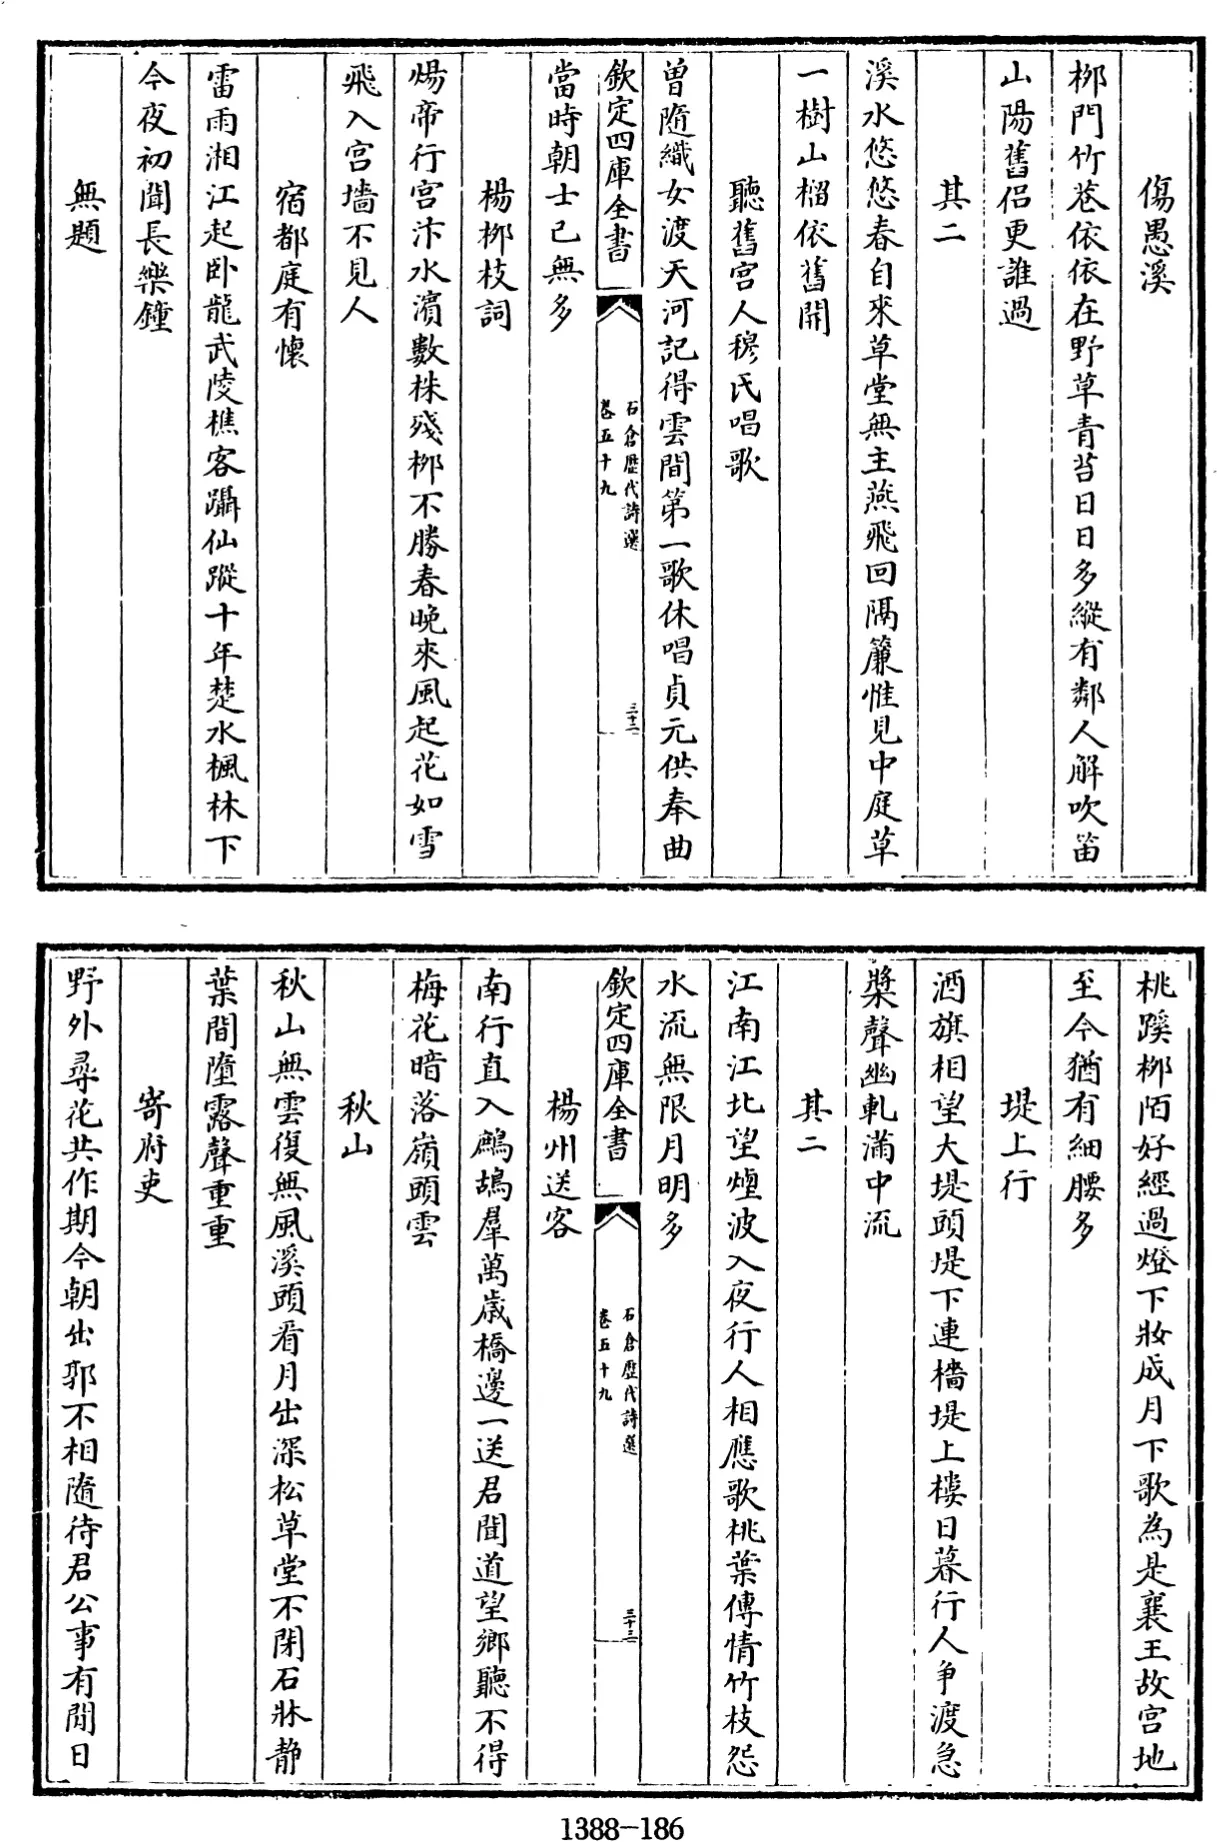 傷愚溪
栁門竹巷依依在野草青苔日日多縱有鄰人解吹笛
山陽舊侣更誰過
其二
溪水悠悠春自來草堂無主燕飛回隔簾惟見中庭草
一樹山榴依舊開
聽舊宫人穆氏唱歌
曽隨織女渡天河記得雲間第一歌休唱貞元供奉曲
欽定四庫全書
石倉歴代詩選
卷五十九
三十二
當時朝士已無多
楊栁枝詞
煬帝行宫汴水濱數株殘栁不勝春晚來風起花如雪
飛入宫墻不見人
宿都庭有懷
雷雨湘江起卧龍武陵樵客躡仙蹤十年楚水楓林下
今夜初聞長樂鐘
無題
桃蹊栁陌好經過燈下妝成月下歌為是襄王故宫地
至今猶有細腰多
堤上行
酒旗相望大堤頭堤下連檣堤上樓日暮行人争渡急
槳聲幽軋滿中流
其二
江南江北望煙波入夜行人相應歌桃葉傳情竹枝怨
水流無限月明多
欽定四庫全書
石倉歴代詩選
卷五十九
三十三
楊州送客
南行直入鷓鴣羣萬歲橋邊一送君聞道望鄉聽不得
梅花暗落嶺頭雲
秋山
秋山無雲復無風溪頭看月出深松草堂不閉石牀静
葉間墮露聲重重
寄府吏
野外尋花共作期今朝出郭不相隨待君公事有閒日
1388-186